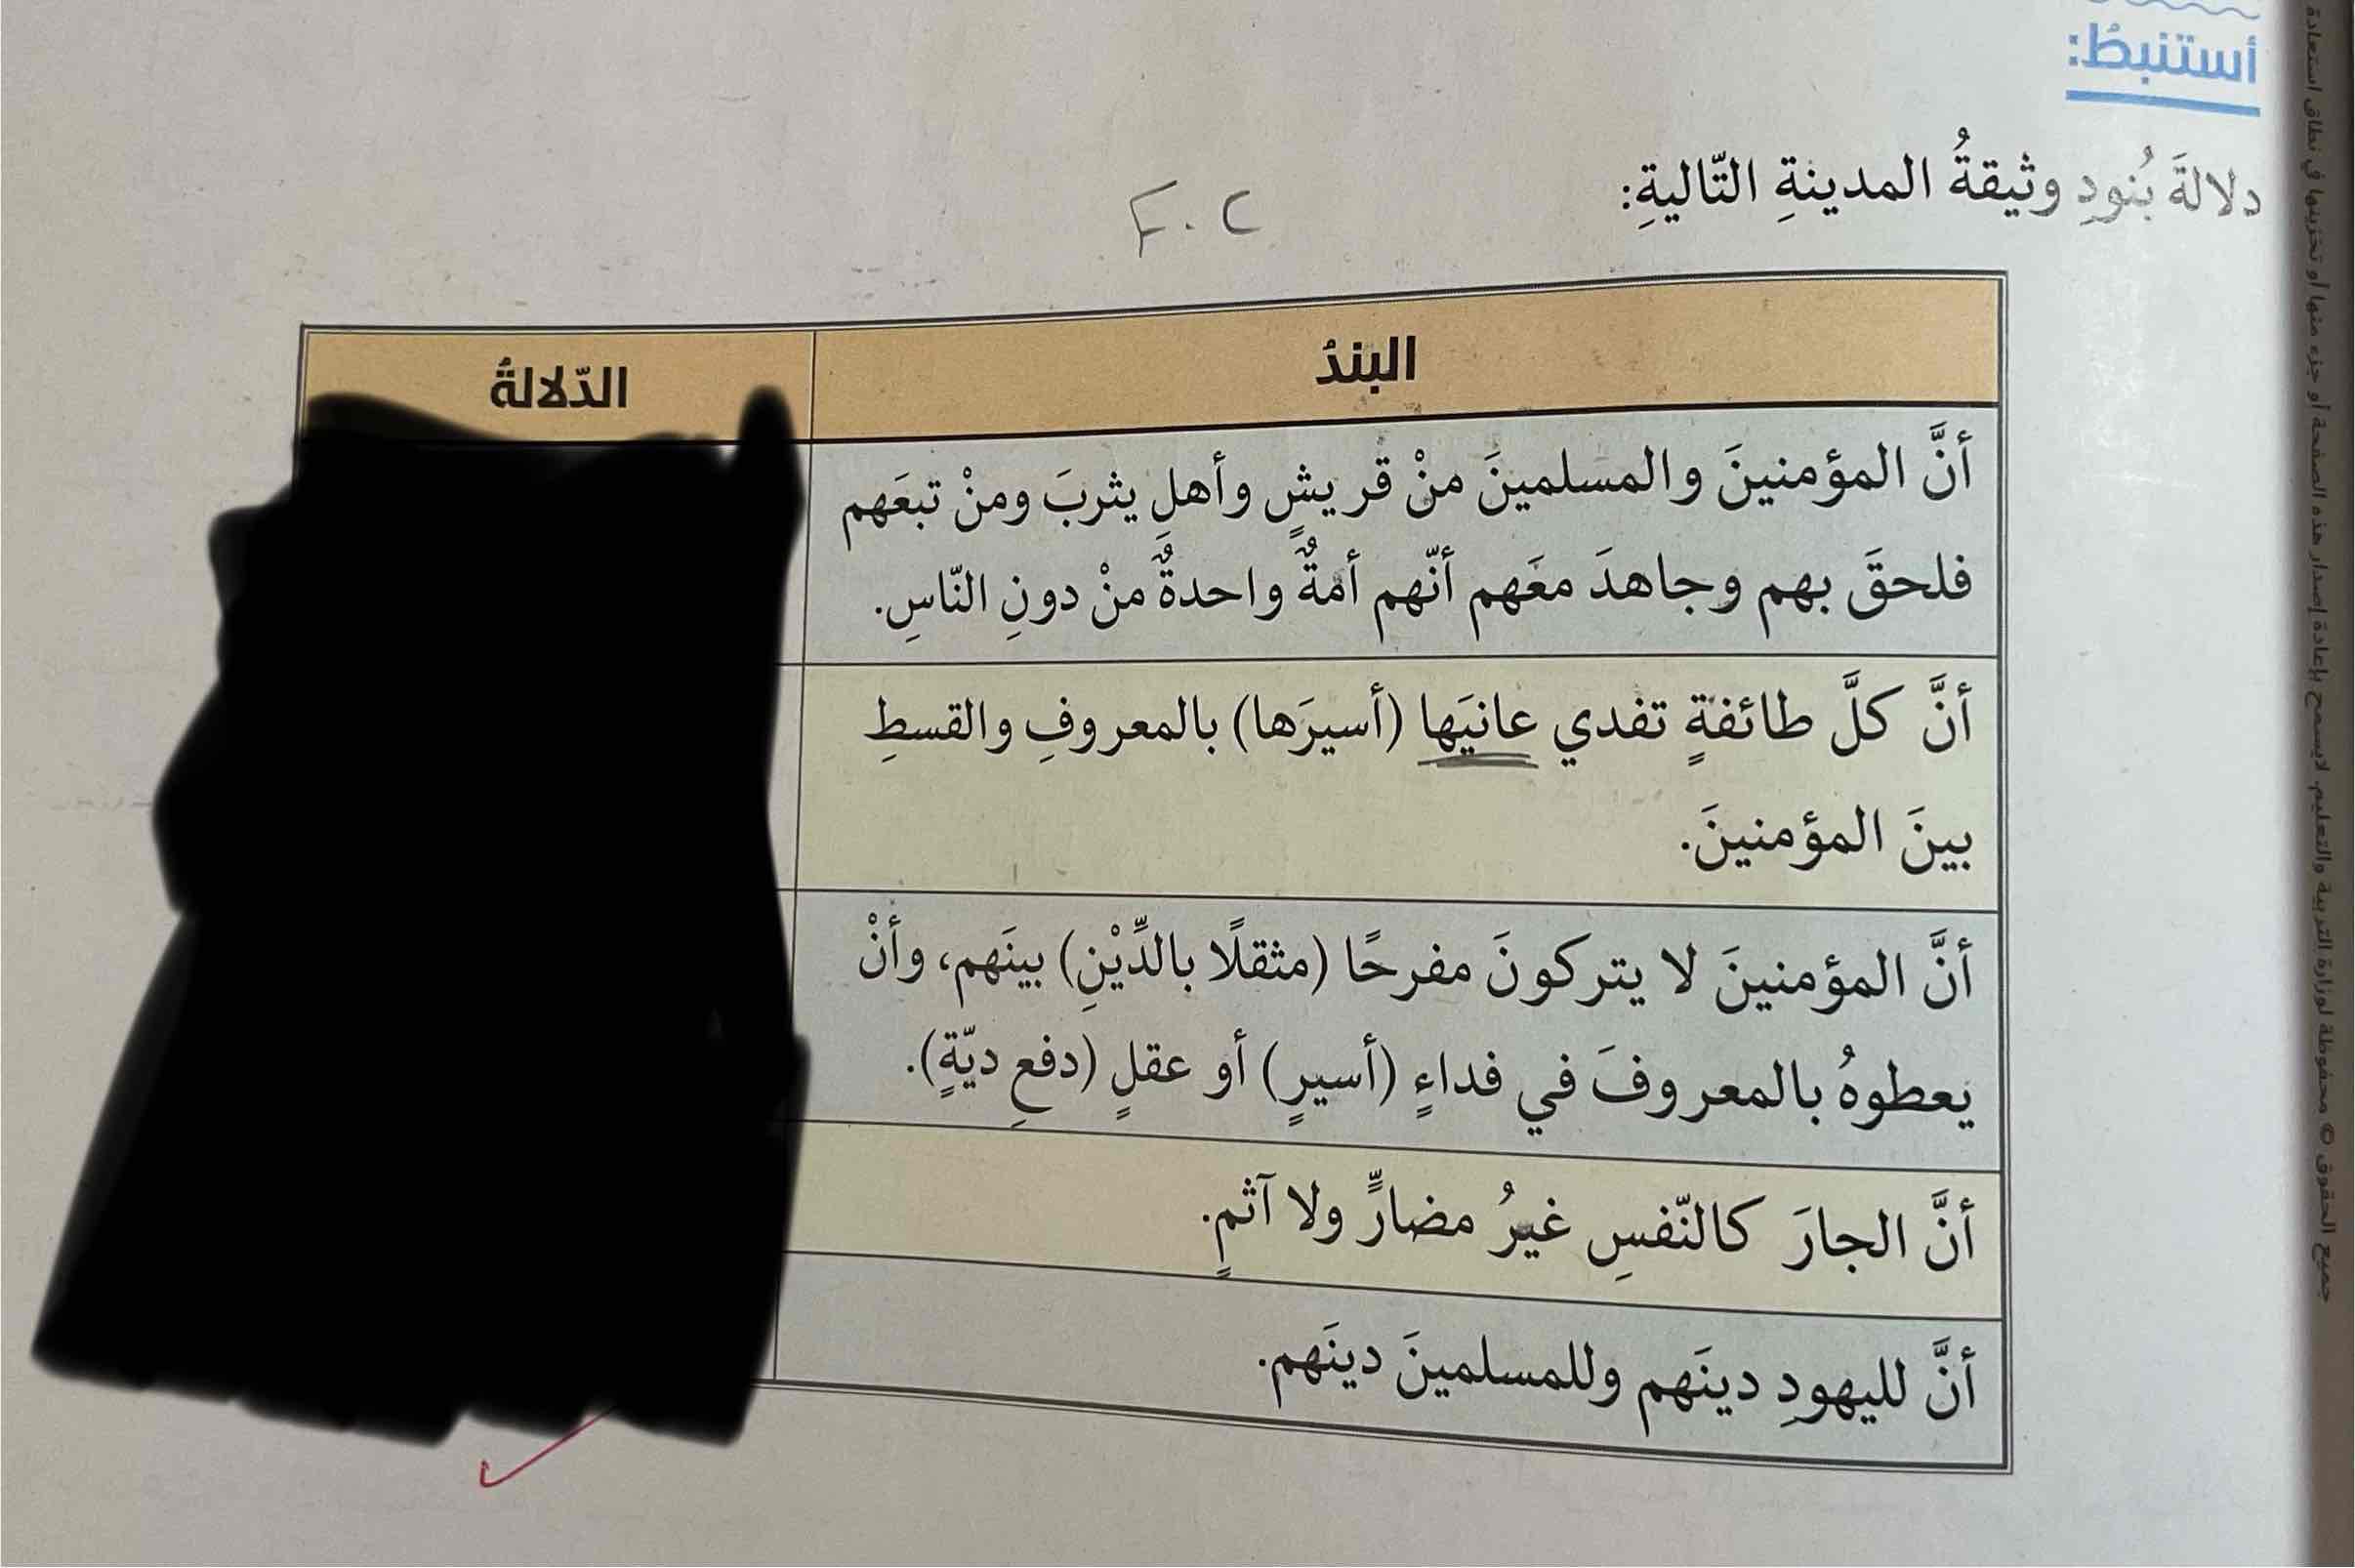 أستنبطُ:
دلالةَ بُنودِ وثيقةُ المدينةِ التّاليةِ:
البندُ
الدّلالةُ
أنَّ المؤمنينَ والمسلمينَ منْ قريشٍ وأهلِ يثربَ ومنْ تبعَهم
فلحقَ بهم وجاهدَ معَهم أنّهم أمةٌ واحدةٌ منْ دونِ النّاسِ.
أنَّ كلَّ طائفةٍ تفدي عانيَها (أسيرَها) بالمعروفِ والقسطِ
بينَ المؤمنينَ.
أنَّ المؤمنينَ لا يتركونَ مفرحًا (مثقلًا بالدِّيْنِ) بينَهم، وأنْ
يعطوهُ بالمعروفَ في فداءٍ (أسيرٍ) أو عقلٍ (دفعِ ديّةٍ).
أنَّ الجارَ كالنّفسِ غيرُ مضارٍّ ولا آثمٍ.
أنَّ لليهودِ دينَهم وللمسلمينَ دينَهم.
جميع الحقوق © محفوظة لوزارة التربية والتعليم. لايسمح بإعادة إصدار هذه الصفحة أو جزء منها أو تخزينها في نطاق استعادة